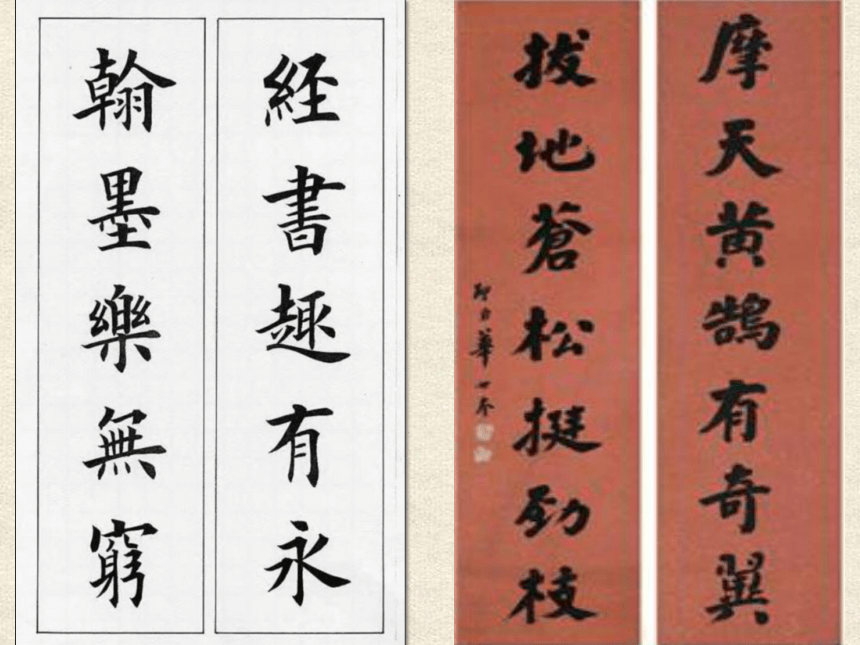 經書趣有永
翰墨樂無窮
摩天黄鹄有奇翼
拔地蒼松挺劲枝